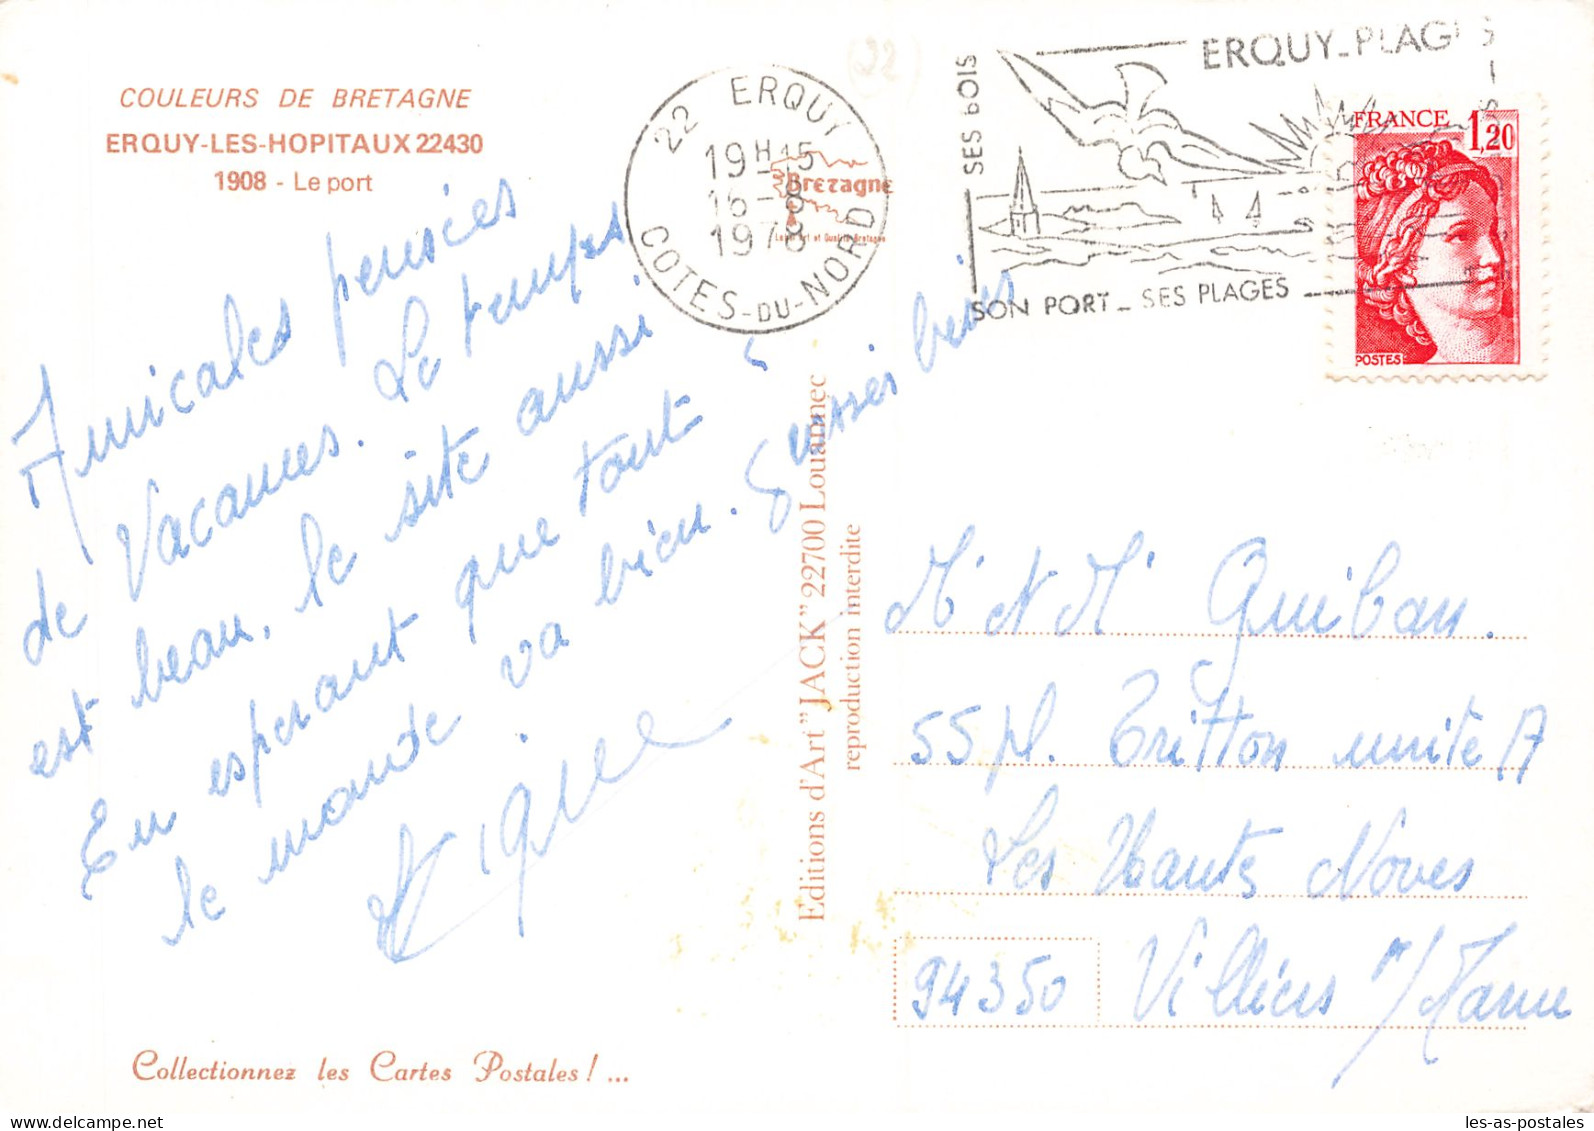 COULEURS DE BRETAGNE
ERQUY-LES-HOPITAUX 22430
1908 - Le port
22 ERQUY
19H-15
16-8
1978
COTES-DU-NORD
Bretagne
Label Art et Qualité Bretagne
(22)
ERQUY-PLAGES
SES BOIS
SON PORT - SES PLAGES
FRANCE 1,20
POSTES
Amicales pensées
de Vacances. Le temps
est beau, le site aussi
En esperant que tout
le monde va bien. Grosses bises
Editions d'Art "JACK" 22700 Louannec
reproduction interdite
Mr et Mme Guiban.
55 pl. Tritton unité A
Les Hauts Noves
94350 Villiers s/Marne
Collectionnez les Cartes Postales ! ...
les-as-postales.com